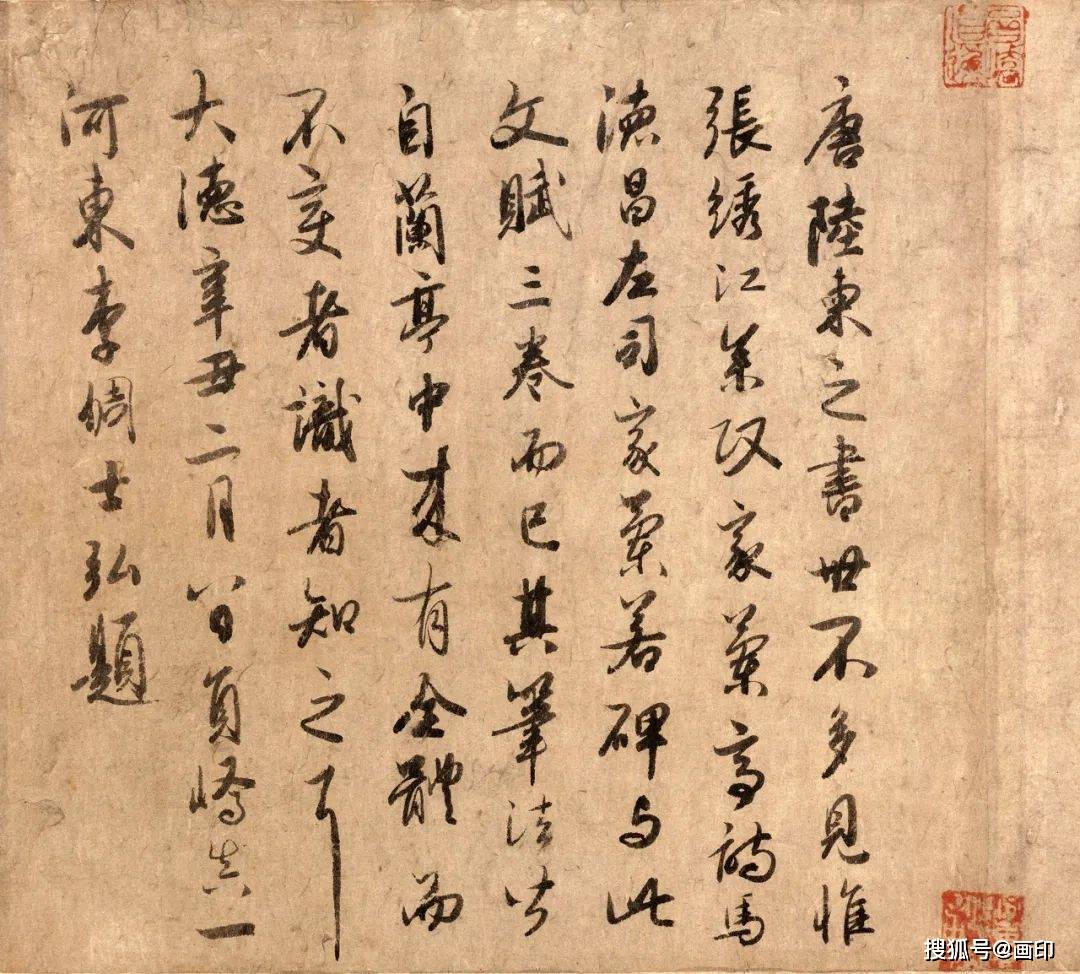 唐陸柬之書世不多見惟
張綉江參政家蘭亭詩馬
德昌左司家蘭若碑与此
文賦三卷而已其筆法皆
自蘭亭中來有全體而
不变者識者知之耳
大德辛丑二月八日員嶠真一
河東李倜士弘題
搜狐号@画印